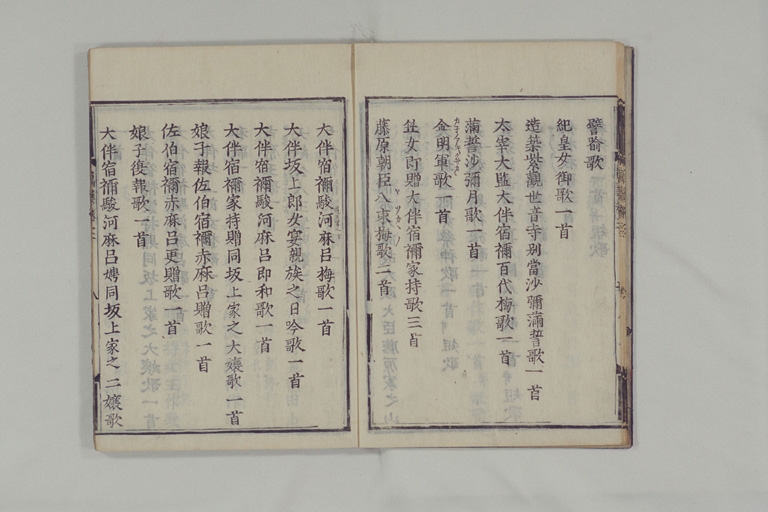 譬喩歌
紀皇女御歌一首
造筑紫觀世音寺別當沙彌滿誓歌一首
太宰大監大伴宿禰百代梅歌一首
滿誓沙彌月歌一首
金明軍歌一首
笠女郎贈大伴宿禰家持歌三首
藤原朝臣八束梅歌二首
大伴宿禰駿河麻呂梅歌一首
大伴坂上郎女宴親族之日吟歌一首
大伴宿禰駿河麻呂即和歌一首
大伴宿禰家持贈同坂上家之大孃歌一首
娘子報佐伯宿禰赤麻呂贈歌一首
佐伯宿禰赤麻呂更贈歌一首
娘子復報歌一首
大伴宿禰駿河麻呂娉同坂上家之二孃歌